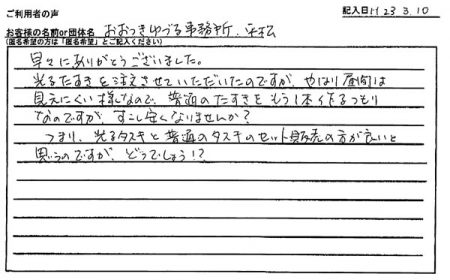 ご利用者の声
記入日H23.3.10
お客様の名前or団体名 おおつきゆづる事務所.平松
(匿名希望の方は「匿名希望」とご記入ください)
早々にありがとうございました。
光るたすきを注文させていただいたのですが、やはり昼間は
見えにくい様なので、普通のたすきをもう1本作るつもり
なのですが、すこし安くなりませんか?
つまり、光るタスキと普通のタスキのセット販売の方が良いと
思うのですが、どうでしょう!?